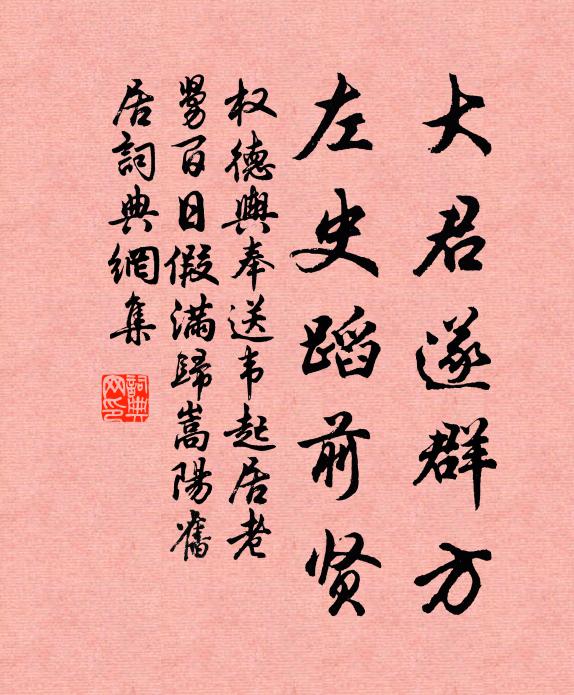 大君遂群方
左史蹈前贤
权德舆奉送韦起居老
舅百日假满归嵩阳旧
居詞典網集
詞典
网印